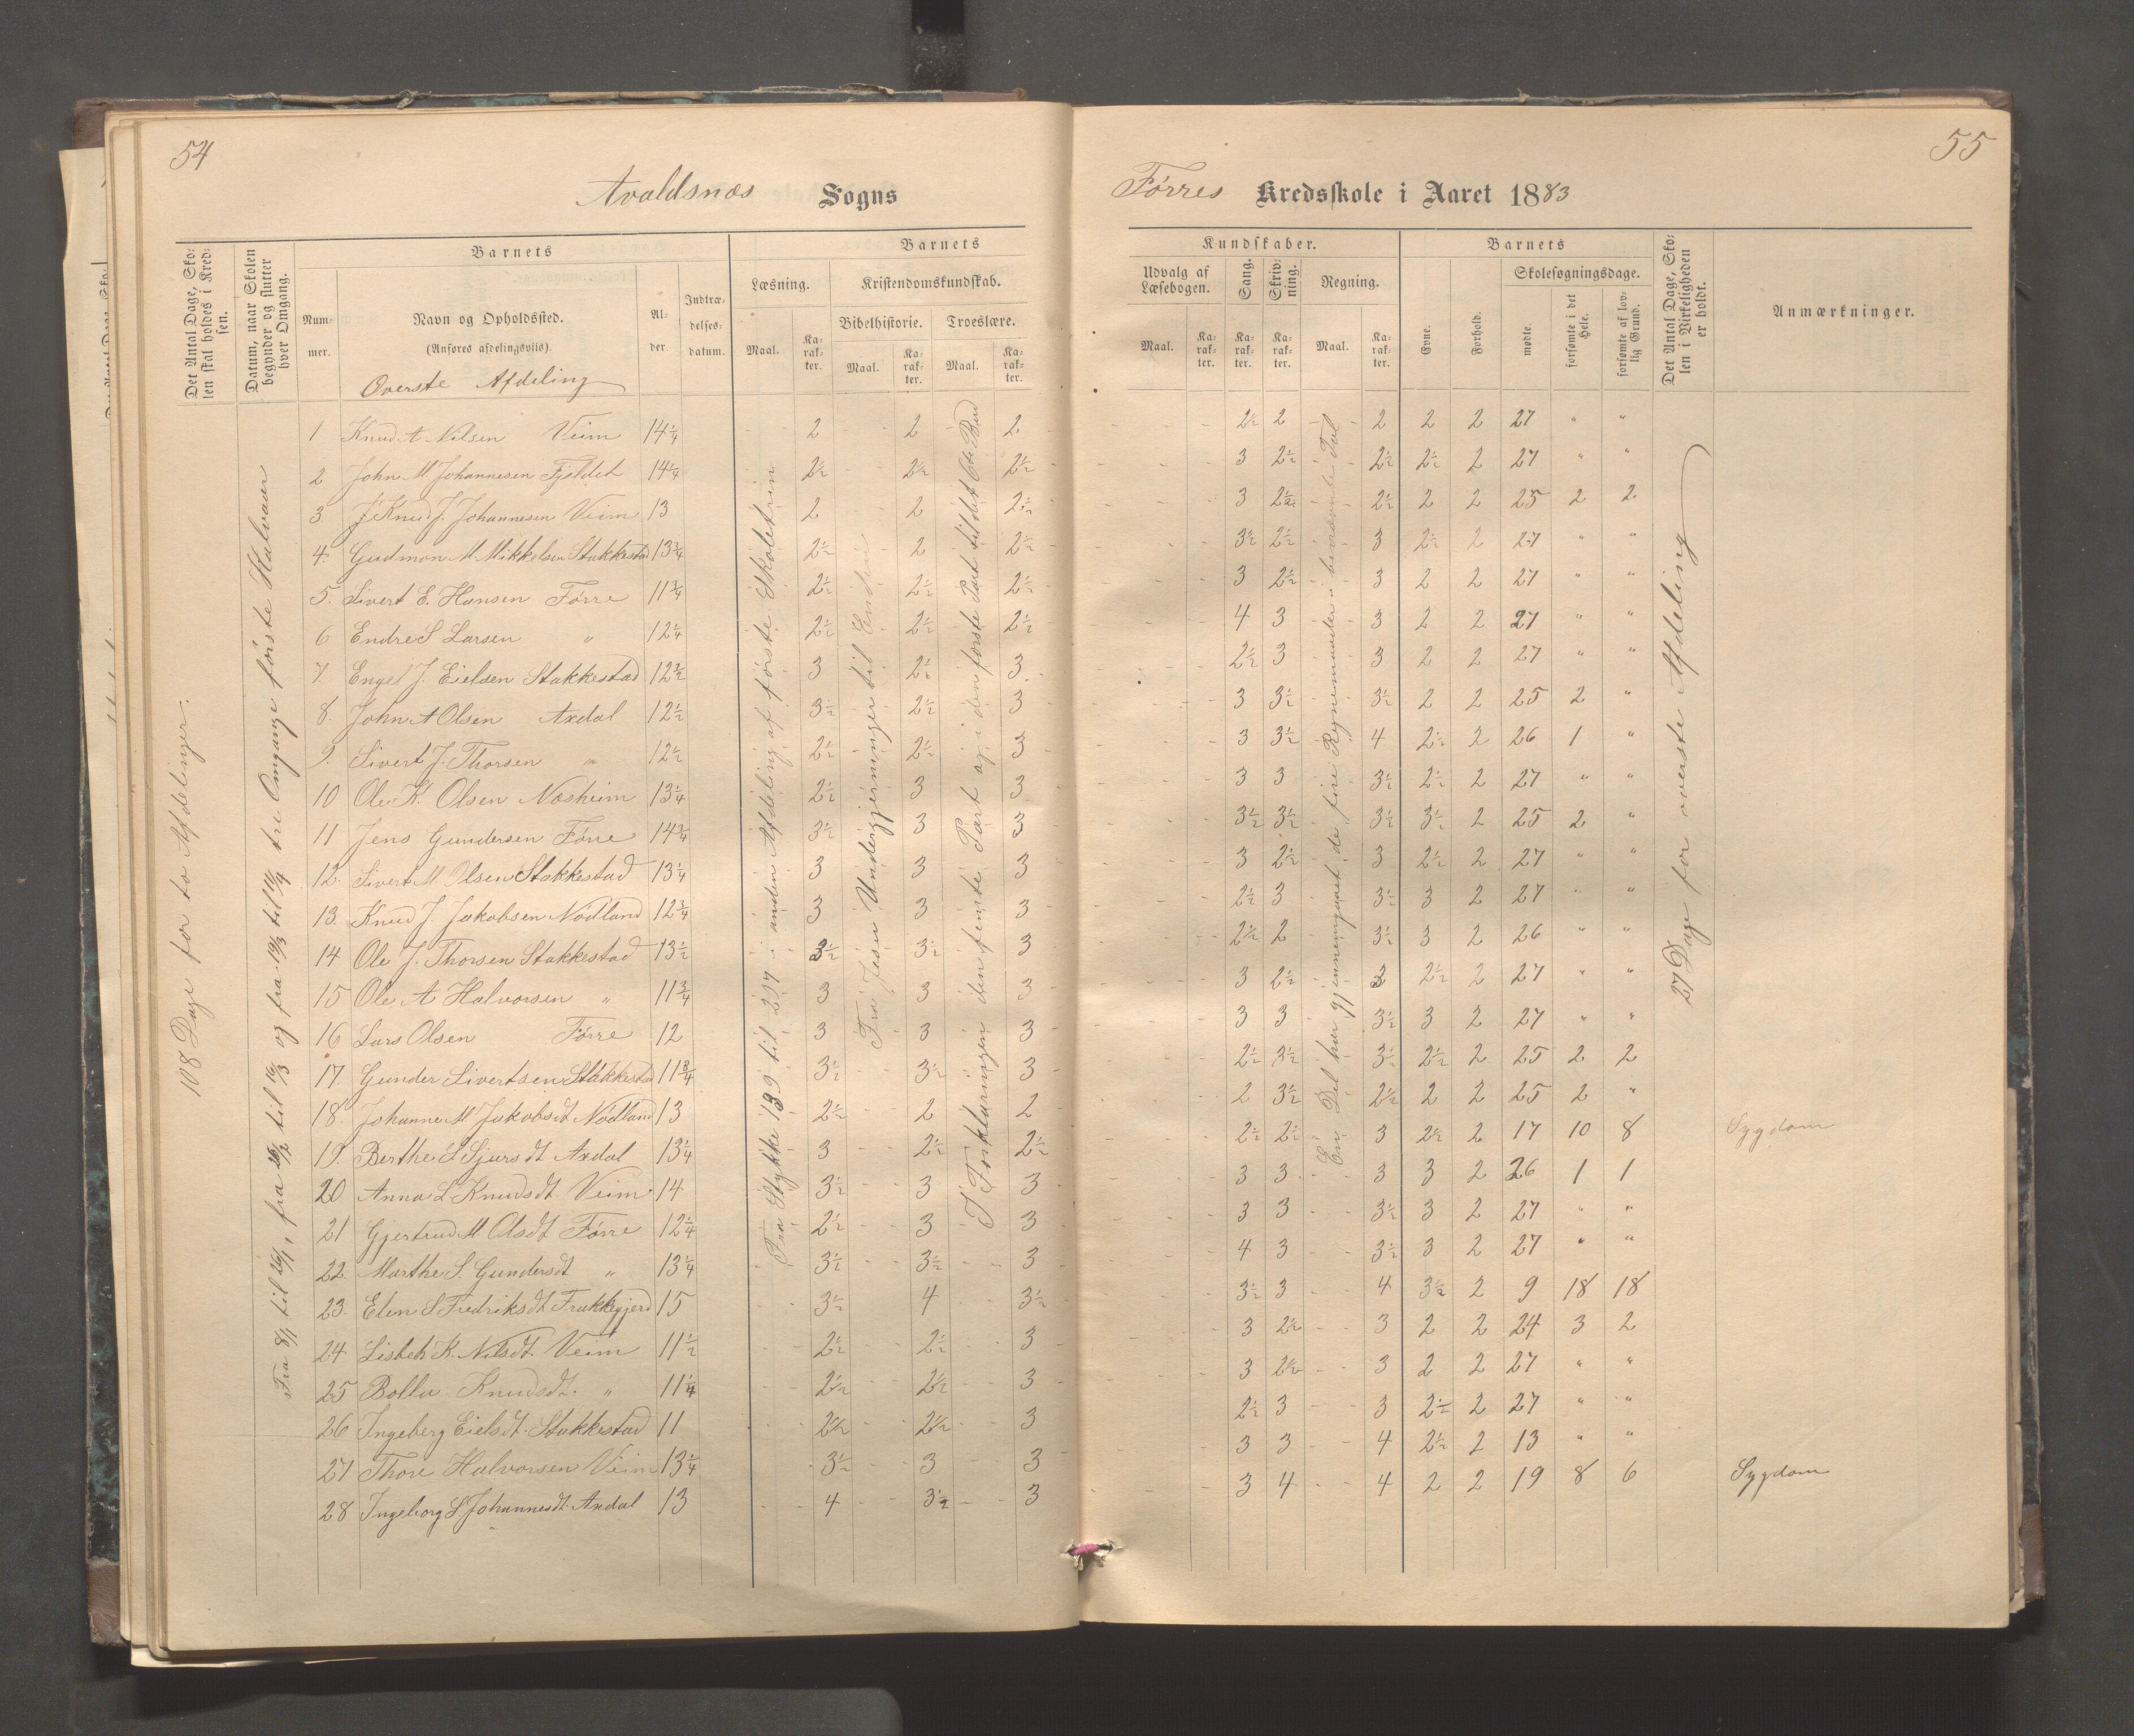 54
Avaldsnæs Sogns
Det Antal Dage, Sko-
len skal holdes i Kred-
sen.
Datum, naar Skolen
begynder og slutter
hver Omgang.
Barnets
Num-
mer.
Navn og Opholdssted.
(Anføres afdelingsviis).
Al-
der.
Indtræ-
delses-
datum.
Barnets
Læsning.
Kristendomskundskab.
Bibelhistorie.
Troeslære.
Maal.
Ka-
rak-
ter.
Maal.
Ka-
rak-
ter.
Maal.
Ka-
rak-
ter.
Øverste Afdeling
108 Dage for to Afdelinger.
Fra 8/1 til 26/1, fra 26/2 til 16/3 og fra 19/3 til 11/4 tre Omgange første Halvaar
Fra Stykke 139 til 217 i anden Afdeling af første Skoletrin
Fra Jesu Undergjerninger til Enden
I Forklaringen den femte Part og i den første Part til det 6te Bud
1 Knud A Nilsen Veim 14 1/4 2 2 2
2 John M Johannesen Fjeldet 14 1/4 2 1/2 2 1/2 2 1/2
3 Knud J. Johannesen Veim 13 2 2 2 1/2
4. Gudmon M Mikkelsen Stakkestad 13 3/4 2 1/2 2 2 1/2
5. Sivert E. Hansen Førre 11 3/4 2 1/2 2 1/2 2 1/2
6 Endre S Larsen " 12 1/4 2 1/2 2 1/2 2 1/2
7. Engel J. Eielsen Stakkestad 12 1/2 3 2 1/2 3
8. John A Olsen Axdal 12 1/2 3 1/2 2 1/2 3
9. Sivert J. Thorsen " 12 1/2 2 1/2 2 1/2 3
10 Ole K. Olsen Nosheim 13 1/4 2 1/2 3 3
11 Jens Gundersen Førre 14 3/4 3 1/2 3 3
12. Sivert M. Olsen Stakkestad 13 1/4 3 3 3
13. Knud J. Jakobsen Nodland 12 3/4 3 3 3
14 Ole J. Thorsen Stakkestad 13 1/2 3 1/2 3 1/2 3
15 Ole A Halvorsen " 11 3/4 3 3 3
16 Lars Olsen Førre 12 3 3 3
17. Gunder Sivertsen Stakkestad 11 3/4 3 1/2 3 1/2 3
18. Johanne M Jakobsdt Nodland 13 2 1/2 2 2
19. Berthe S Sjursdt Axdal 13 1/4 3 2 1/2 2 1/2
20 Anna L Knudsdt Veim 14 3 1/2 3 3
21 Gjertrud M. Olsdt Førre 12 1/4 2 1/2 3 3
22. Marthe S. Gundersdt " 13 1/4 3 1/2 3 1/2 3
23. Elen S Fredriksdt 15 3 1/2 4 3 1/2
24 Lisbeth K. Nilsdt. Veim 11 1/2 2 1/2 2 1/2 3
25 Knudsdt. " 11 1/4 2 1/2 2 1/2 3
26 Ingeberg Eielsdt. Stakkestad 11 2 1/2 2 1/2 3
27 Thore Halvorsen Veim 13 1/4 3 1/2 3 3
28 Ingeborg S Johannesdt. Axdal 13 4 3 1/2 3
55
Førres Kredsskole i Aaret 1883
Kundskaber.
Udvalg af
Læsebogen.
Sang.
Skriv-
ning.
Regning.
Maal.
Ka-
rak-
ter.
Ka-
rak-
ter.
Ka-
rak-
ter.
Maal.
Ka-
rak-
ter.
Barnets
Evne.
Forhold.
Skolesøgningsdage.
mødte.
forsømte i det
Hele.
forsømte af lov-
lig Grund.
Det Antal Dage, Sko-
len i Virkeligheden
er holdt.
Anmærkninger.
En Del har gjennemgaaet de fire Regnemaader i benævnte Tal
27 Dage for øverste Afdeling
2 1/2 2 2 2 2 27 " "
3 2 1/2 2 1/2 2 1/2 2 27 " "
3 2 1/2 2 1/2 2 2 25 2 2
3 1/2 2 1/2 3 2 1/2 2 27 " "
3 2 1/2 3 2 2 27 " "
4 3 3 2 2 27 " "
2 1/2 3 3 2 2 27 " "
3 3 1/2 3 1/2 2 2 25 2 "
3 3 1/2 4 2 1/2 2 26 1 "
3 3 3 1/2 2 1/2 2 27 " "
3 1/2 3 1/2 3 1/2 3 1/2 2 25 2 "
3 2 1/2 3 2 1/2 2 27 " "
2 1/2 3 3 1/2 3 2 27 " "
2 1/2 2 3 1/2 3 2 26 " "
3 2 1/2 3 2 1/2 2 27 " "
3 3 3 1/2 3 2 27 " "
2 1/2 3 1/2 3 1/2 2 1/2 2 25 2 2
2 3 1/2 2 1/2 2 2 25 2 "
2 1/2 2 1/2 3 2 1/2 2 17 10 8 Sygdom
3 3 3 3 2 26 1 1
3 3 3 1/2 3 2 27 " "
4 3 3 1/2 3 2 27 " "
3 1/2 3 4 3 1/2 2 9 18 18
3 2 1/2 3 2 2 24 3 2
3 2 1/2 3 2 2 27 " "
2 1/2 3 3 2 1/2 2 27 " "
3 3 4 2 1/2 2 13 " "
3 4 4 2 2 19 8 6 Sygdom